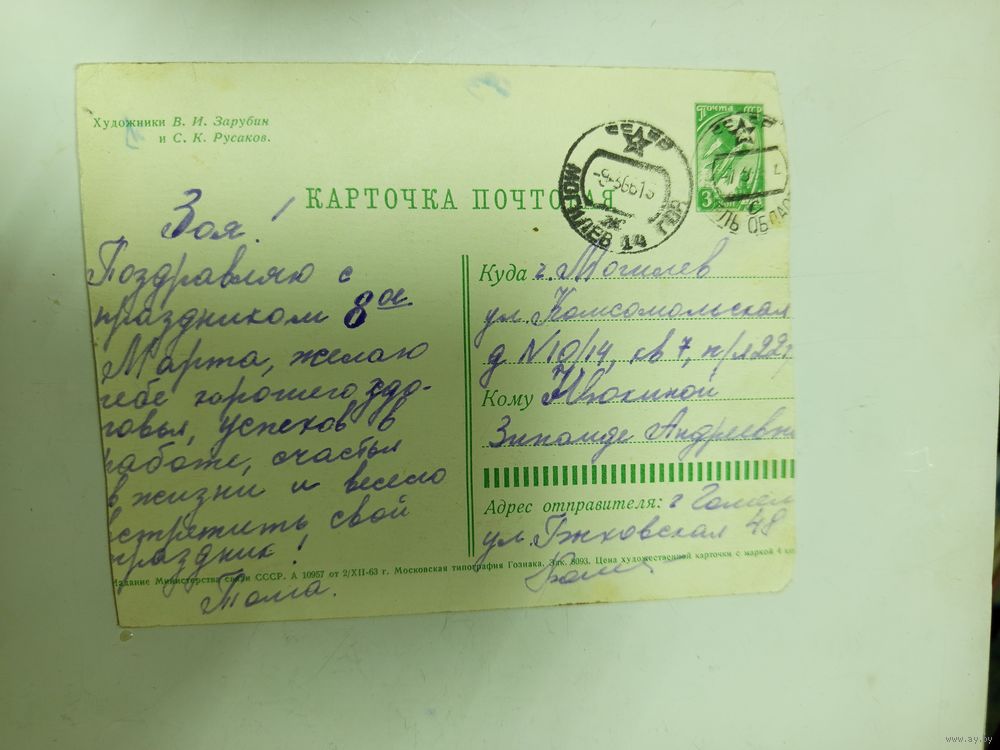 Художники В. И. Зарубин
и С. К. Русаков.
ПОЧТА СССР
3
МОГИЛЕВ 14 ГОР
КАРТОЧКА ПОЧТОВАЯ
Зоя!
Поздравляю с
праздником 8ое
Марта, желаю
тебе хорошего здо-
ровья, успехов в
работе, счастья
в жизни и весело
встретить свой
праздник!
Тома.
Куда г. Могилев
ул. Комсомольская
д N10/14, кв 7,
Кому
Зинаиде Андреевне
Адрес отправителя: г Гомель
ул. 48
Издание Министерства связи СССР. А 10957 от 2/XII-63 г. Московская типография Гознака. Зак. 8093. Цена художественной карточки с маркой 4 коп
www.ay.by